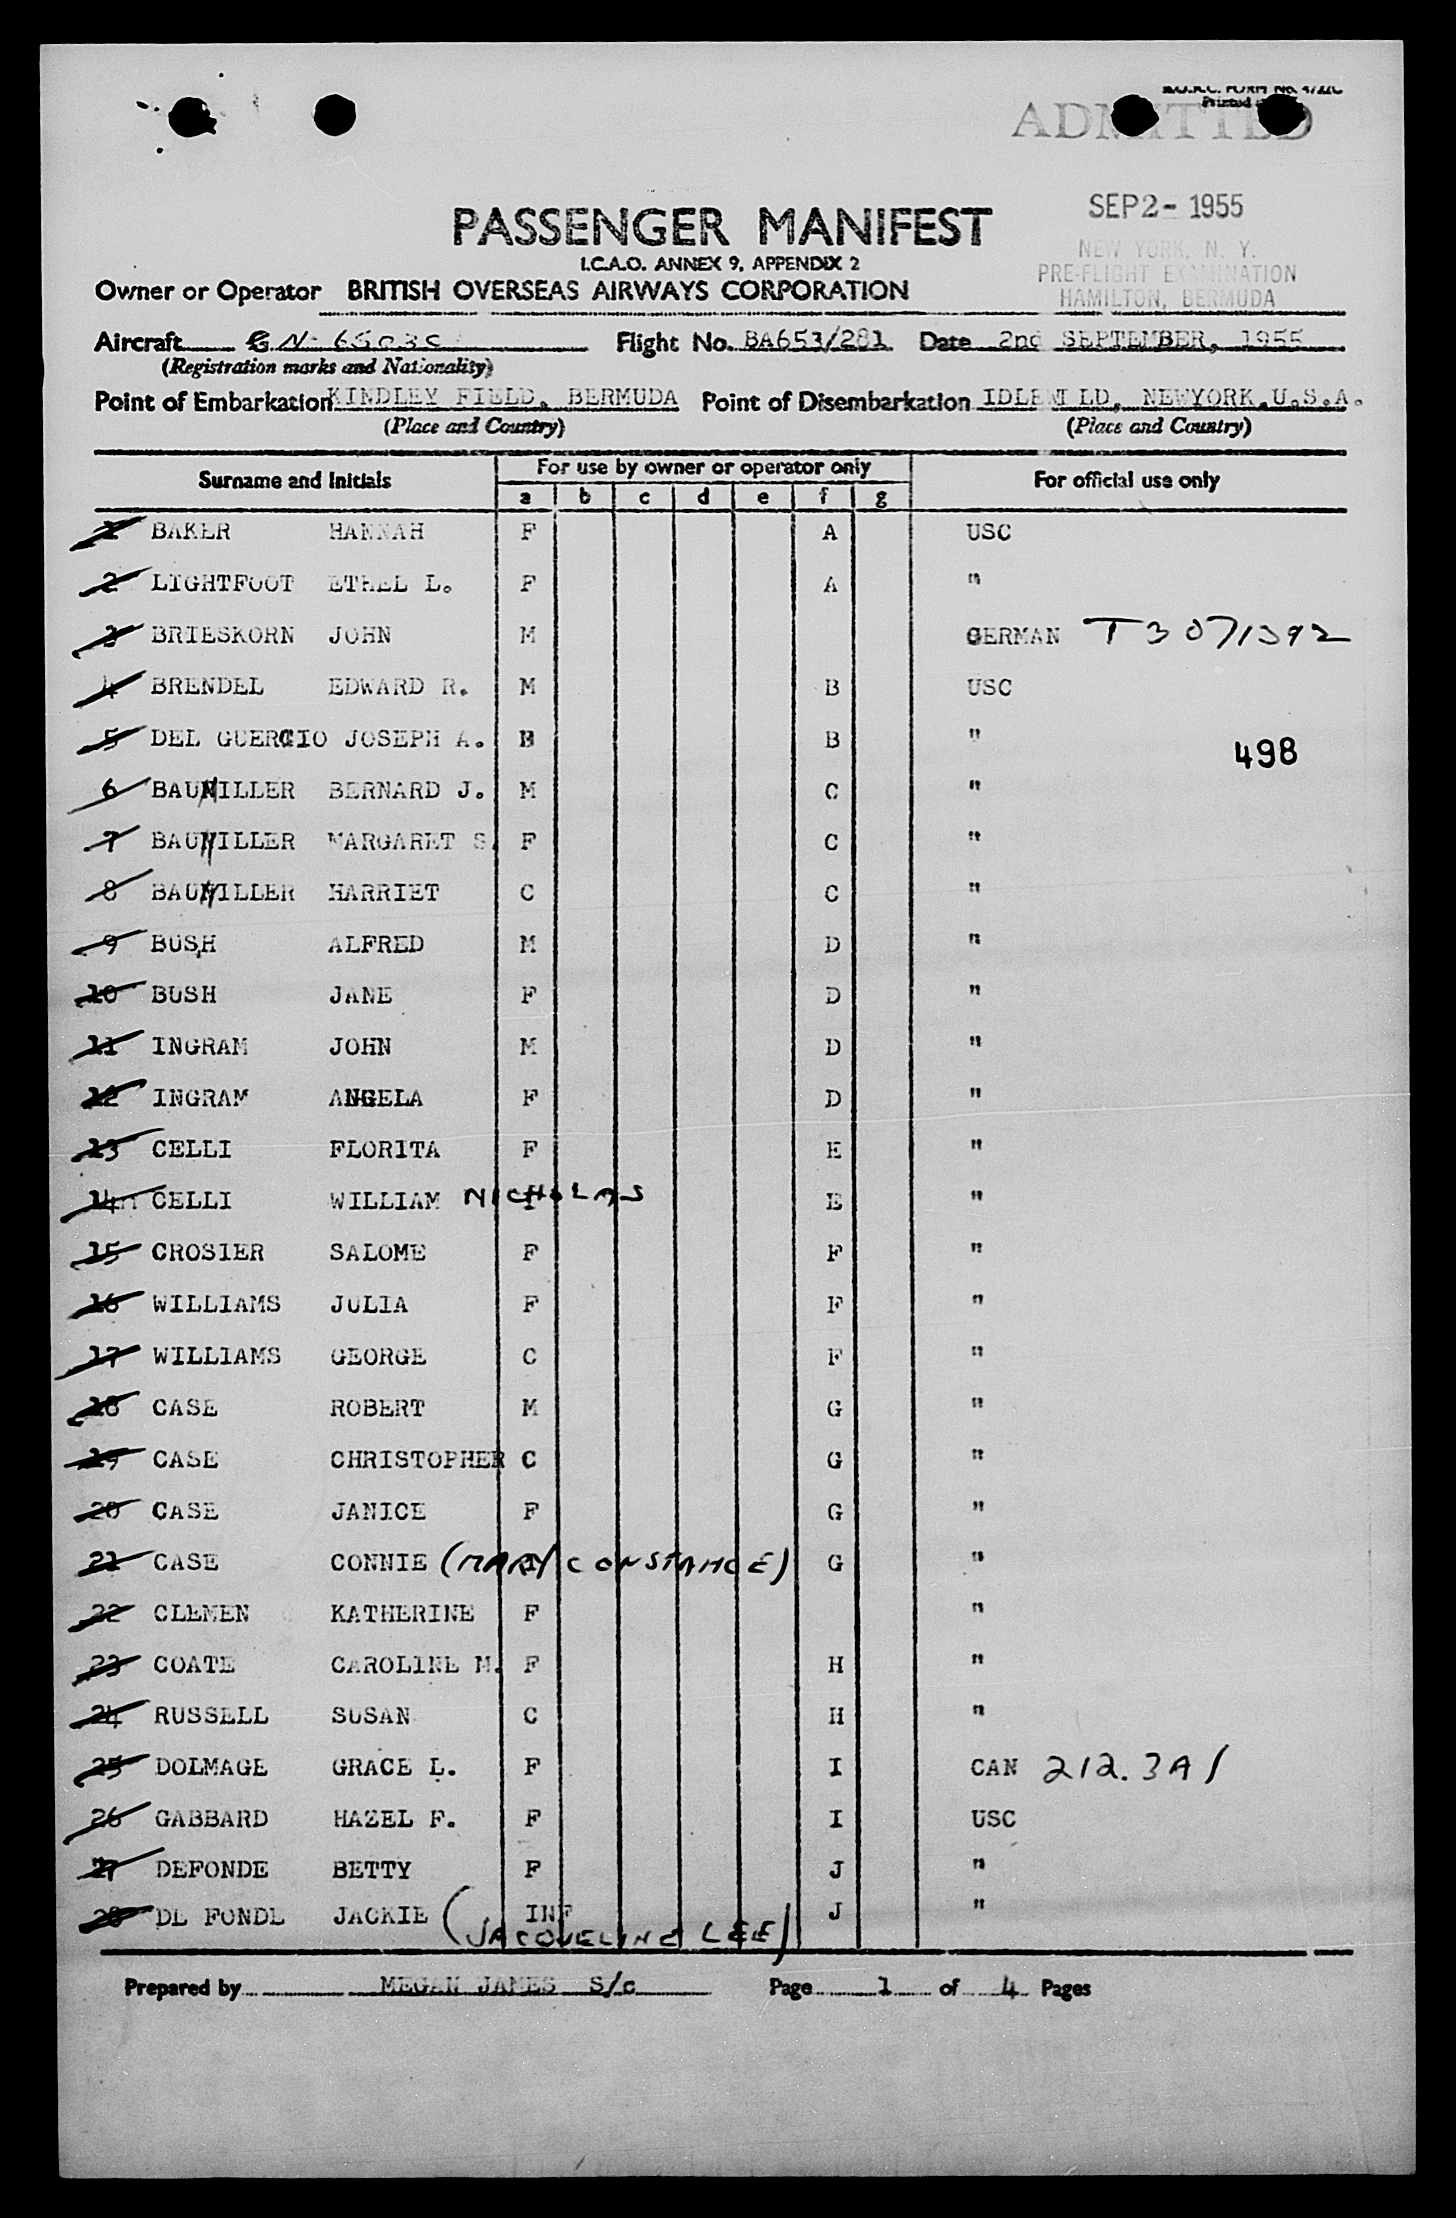 B.O.A.C. FORM No.
Printed
ADMITTED
SEP 2 - 1955
PASSENGER MANIFEST
NEW YORK, N. Y.
I.C.A.O. ANNEX 9, APPENDIX 2
PRE-FLIGHT EXAMINATION
Owner or Operator BRITISH OVERSEAS AIRWAYS CORPORATION
HAMILTON, BERMUDA
Aircraft Flight No. BA653/281 Date 2nd SEPTEMBER, 1955
(Registration marks and Nationality)
Point of Embarkation KINDLEY FIELD, BERMUDA Point of Disembarkation IDLEWILD, NEWYORK.U.S.A.
(Place and Country) (Place and Country)
Surname and Initials For use by owner or operator only For official use only
a b c d e f g
1 BAKER HANNAH F A USC
2 LIGHTFOOT ETHEL L. F A "
3 BRIESKORN JOHN M GERMAN T3071392
4 BRENDEL EDWARD R. M B USC
5 DEL GUERCIO JOSEPH A. B "
498
6 BAUMILLER BERNARD J. M C "
7 BAUMILLER MARGARET S. F C "
8 BAUMILLER HARRIET C C "
9 BUSH ALFRED M D "
10 BUSH JANE F D "
11 INGRAM JOHN M D "
12 INGRAM ANGELA F D "
13 CELLI FLORITA F E "
14 CELLI WILLIAM NICHOLAS E "
15 CROSIER SALOME F F "
16 WILLIAMS JULIA F F "
17 WILLIAMS GEORGE C F "
18 CASE ROBERT M G "
19 CASE CHRISTOPHER C G "
20 CASE JANICE F G "
21 CASE CONNIE (MARY CONSTANCE) G "
22 CLEMEN KATHERINE F "
23 COATE CAROLINE M. F H "
24 RUSSELL SUSAN C H "
25 DOLMAGE GRACE L. F I CAN 212.3A1
26 GABBARD HAZEL F. F I USC
27 DEFONDE BETTY F J "
28 DE FONDE JACKIE (JACQUELINE LEE) INF J "
Prepared by MEGAN JAMES S/c Page 1 of 4 Pages